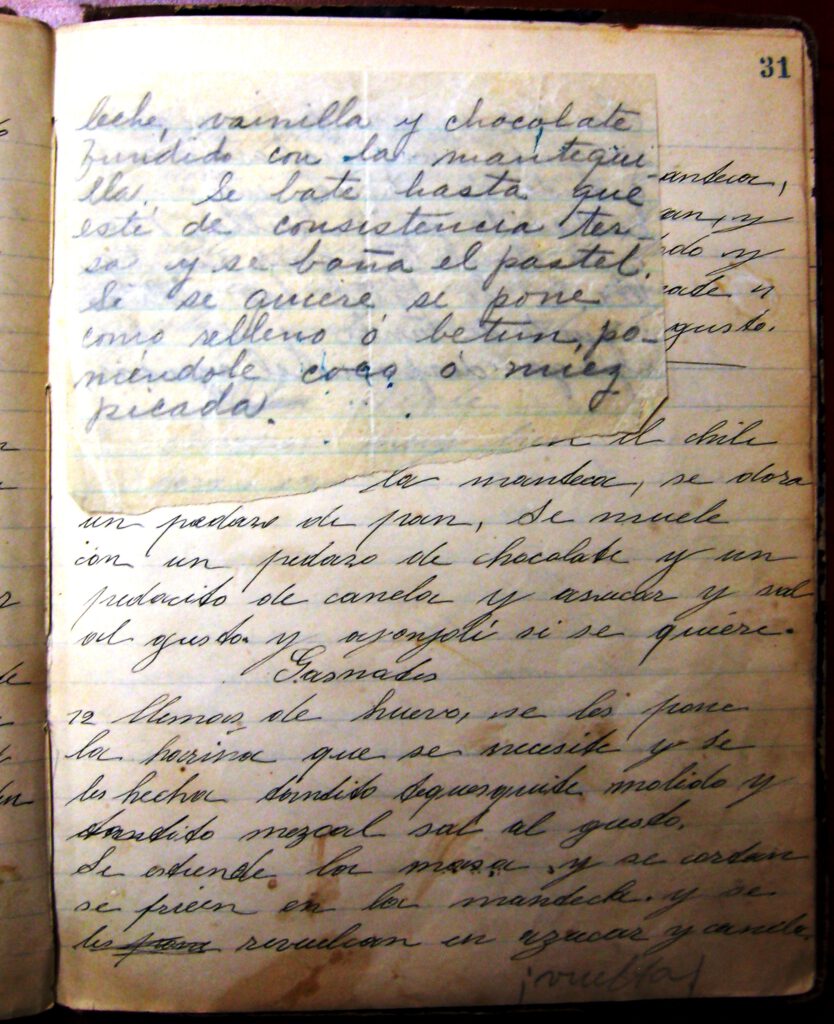 31
leche, vainilla y chocolate
fundido con la mantequi-
lla. Se bate hasta que
esté de consistencia ter
sa y se baña el pastel.
Si se quiere se pone
como relleno ó betun, po-
niéndole coco ó nuez
picada.
anteca,
an, y
do y
cate y
gusto.
el chile
la manteca, se dora
un pedazo de pan, Se muele
con un pedazo de chocolate y un
pedacito de canela y asucar y sal
al gusto. y ajonjolí si se quiere.
Gasnates
12 llemas de huevo, se les pone
la harina que se necesite y se
les hecha tandito tequesquite molido y
tandito mezcal sal al gusto.
Se estiende la masa y se cortan
se frien en la manteca. y se
les revuelcan en azucar y canela.
¡vuelta!